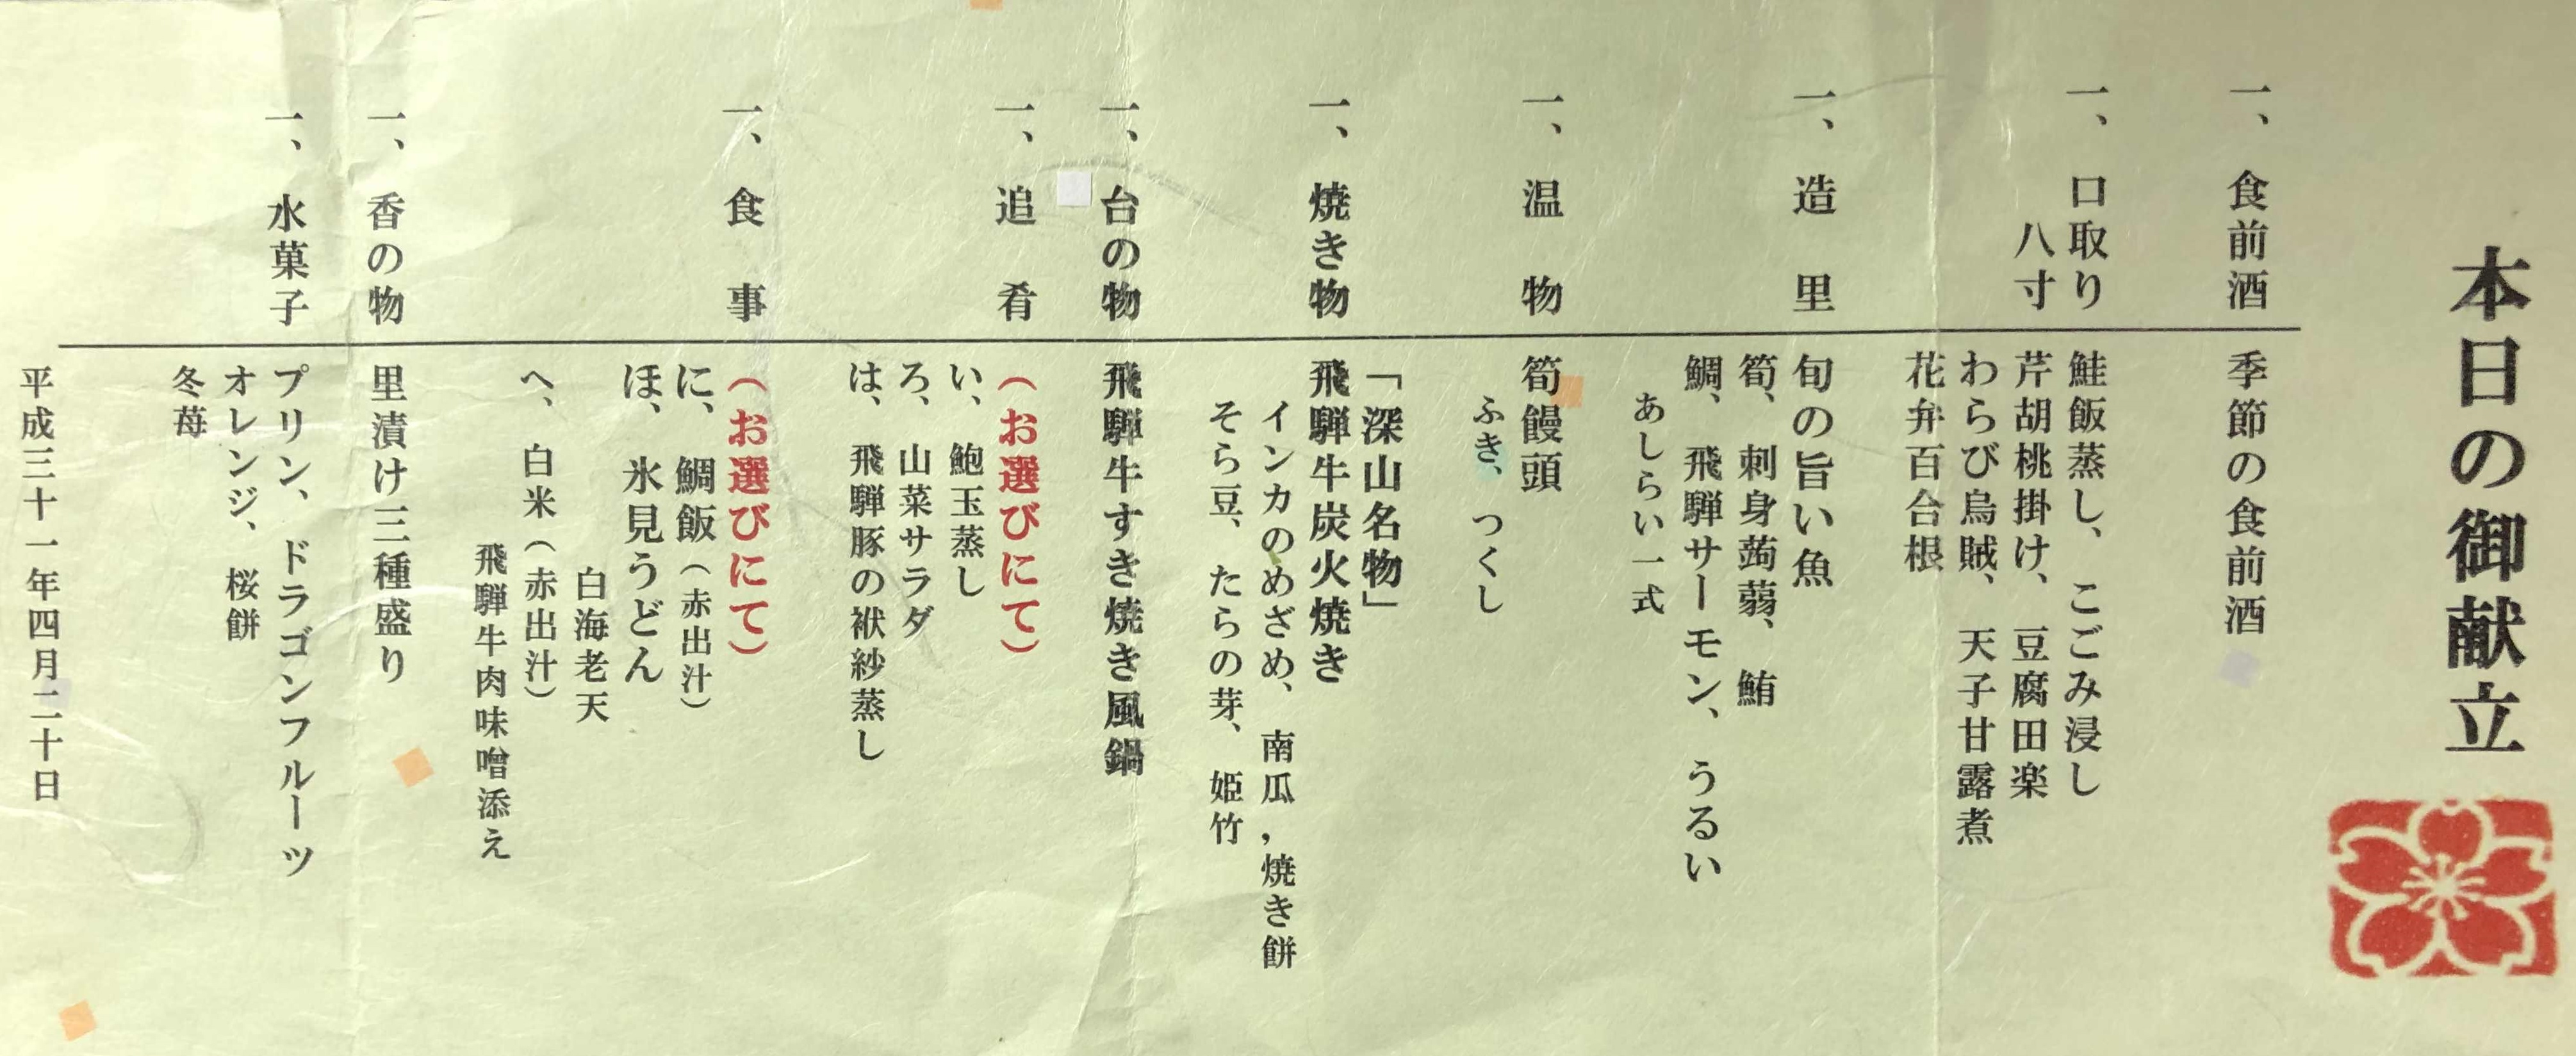 本日の御献立
一、食前酒　季節の食前酒
一、口取り　鮭飯蒸し、こごみ浸し
八寸　芹胡桃掛け、豆腐田楽
わらび烏賊、天子甘露煮
花弁百合根
一、造里　旬の旨い魚
筍、刺身蒟蒻、鮪
鯛、飛騨サーモン、うるい
あしらい一式
一、温物　筍饅頭
ふき、つくし
「深山名物」
一、焼き物　飛騨牛炭火焼き
インカのめざめ、南瓜,焼き餅
そら豆、たらの芽、姫竹
一、台の物　飛騨牛すき焼き風鍋
一、追肴　（お選びにて）
い、鮑玉蒸し
ろ、山菜サラダ
は、飛騨豚の袱紗蒸し
一、食事　（お選びにて）
に、鯛飯（赤出汁）
ほ、氷見うどん
白海老天
へ、白米（赤出汁）
飛騨牛肉味噌添え
一、香の物　里漬け三種盛り
一、水菓子　プリン、ドラゴンフルーツ
オレンジ、桜餅
冬苺
平成三十一年四月二十日